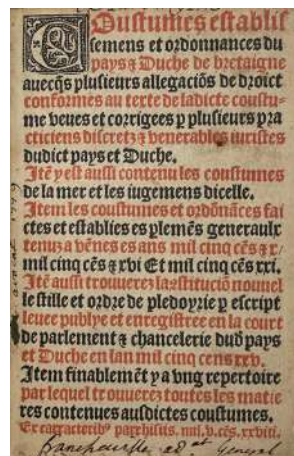 Coustumes establis
semens et ordonnances du
pays ⁊ Duche de bretaigne
auecq̃s plusieurs allegaciõs de droict
conformes au texte de ladicte coustu-
me veues et corrigees p plusieurs pra
cticiens discretz ⁊ venerables iuristes
dudict pays et Duche.
Itẽ y est aussi contenu les coustumes
de la mer et les iugemens dicelle.
Item les coustumes et ordõnãces fai
ctes et establies es plemẽs generaulx
tenuz a vẽnes es ans mil cinq cẽs ⁊ x/
mil cinq cẽs ⁊ xvi Et mil cinq cẽs xxi.
Itẽ aussi trouuerez lastituciõ nouuel
le stille et ordre de pledoyrie p escript
leuee publye et enregistree en la court
de parlement ⁊ chancelerie dud pays
et Duche en lan mil cinq cens xxv.
Item finablemẽt y a vng repertoire
par lequel trouuerez toutes les matie
res contenues ausdictes coustumes.
Ex caracterib⁹ parrhisiis. mil. v. cẽs. xxviii.
general